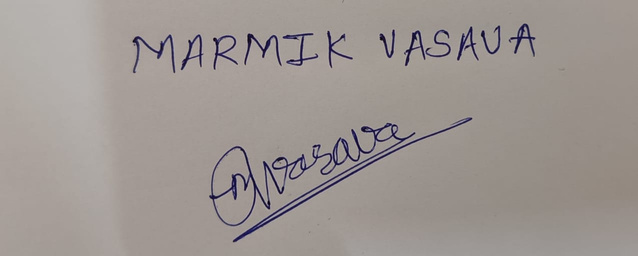 MARMIK VASAVA
Mvasava